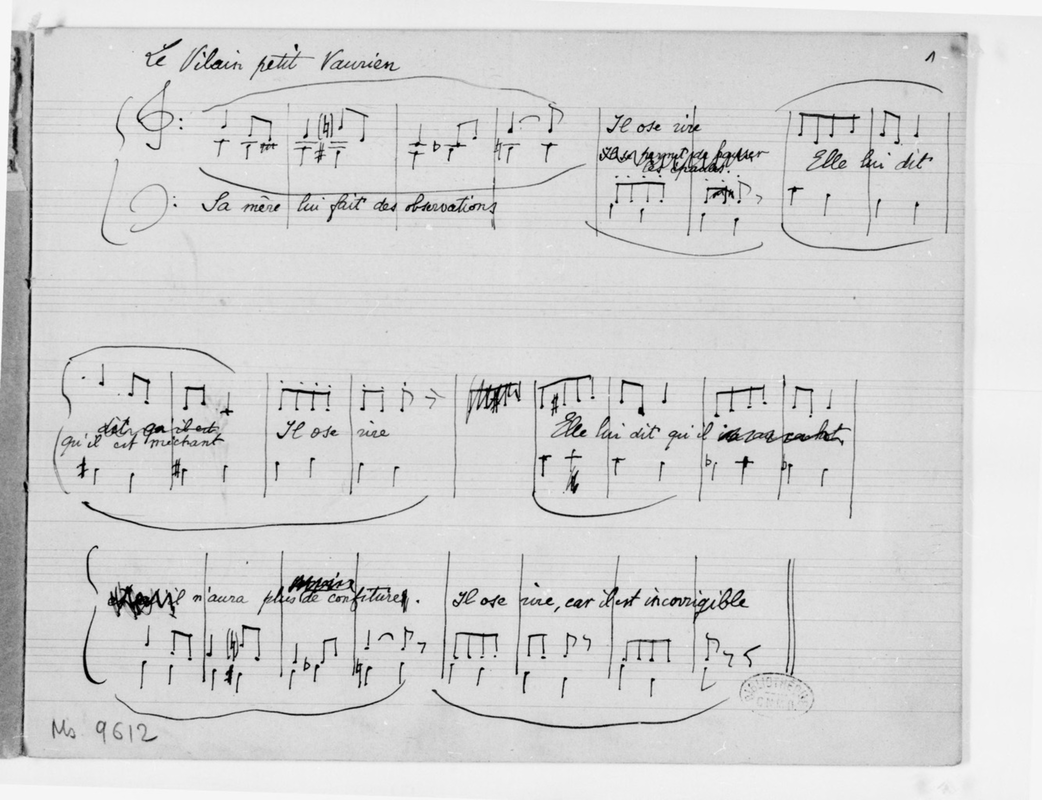 Le Vilain petit Vaurien
1
Il ose rire
Il se permet de hausser
les épaules.
Elle lui dit
Sa mère lui fait des observations
dit qu'il est
qu'il est méchant
Il ose rire
Elle lui dit qu'il
qu'il n'aura plus de confiture.
Il ose rire, car il est incorrigible
BIBLIOTHÈQUE
Ms. 9612